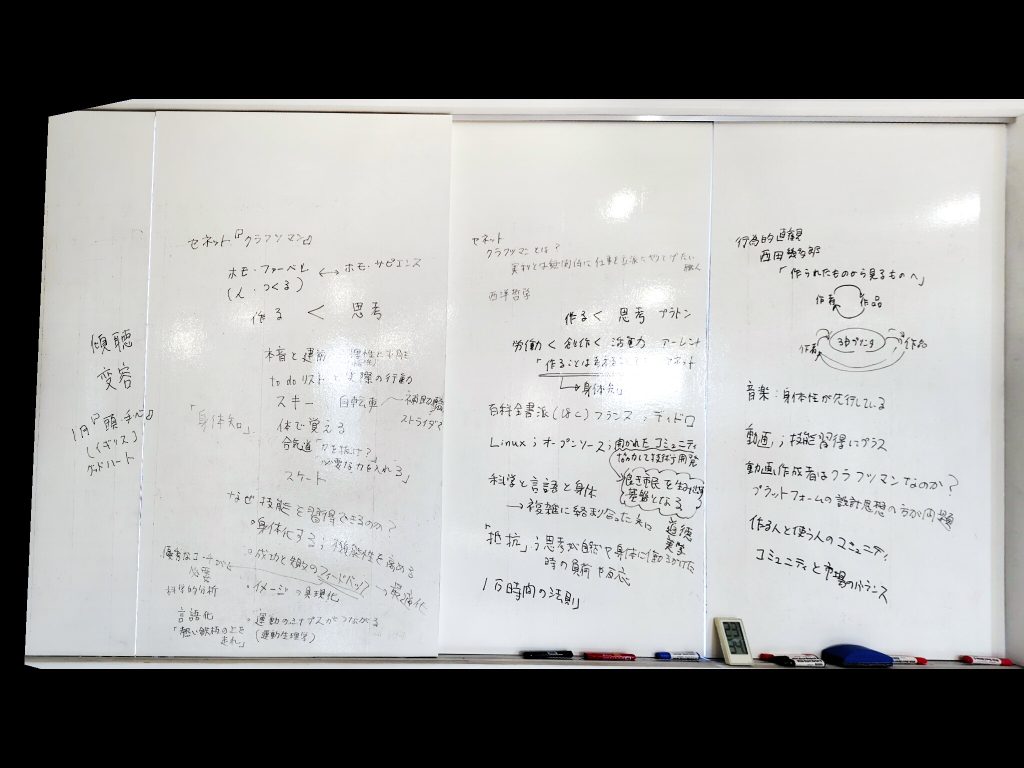 傾聴
変容
1月『頭 手 心』
(イギリス)
グッドハート
セネット『クラフツマン』
ホモ・ファーベル ↔ ホモ・サピエンス
(人・つくる)
作る < 思考
本音と建前
to do リスト と 実際の行動
スキー 自転車
ストライダー
「身体知」 体で覚える
合気道「力を抜け?」
必要な力を入れろ」
スケート
なぜ技能を習得できるのか?
・身体化する;
優秀なコーチが
必要
科学的分析
・成功と失敗のフィードバック → 最適化
・イメージの具現化
言語化
「熱い鉄板の上を
走れ」
・運動のシナプスがつながる
(運動生理学)
セネット
クラフツマンとは?
西洋哲学
作る < 思考 プラトン
労働 < 創作 < 活動力 アーレント
「作ることは考えること
→ 身体知」
百科全書派 フランス;ディドロ
Linux;オープンソース;開かれたコミュニティ
協力して技術を開発
科学と言語と身体
→ 複雑に絡み合ったもの
良き市民を生み出す
基盤となる
道徳
美学
「抵抗」;思考が自然や身体に働きかけた
時の負荷や反応
1万時間の法則
行為的直観
西田幾多郎
「作られたものから見るものへ」
作者 作品
作者 3Dプリンタ 作品
音楽:身体性が先行している
動画;技能習得にプラス
動画作成者はクラフツマンなのか?
プラットフォームの設計思想の方が問題
作る人と使う人のコミュニティ
コミュニティと市場のバランス